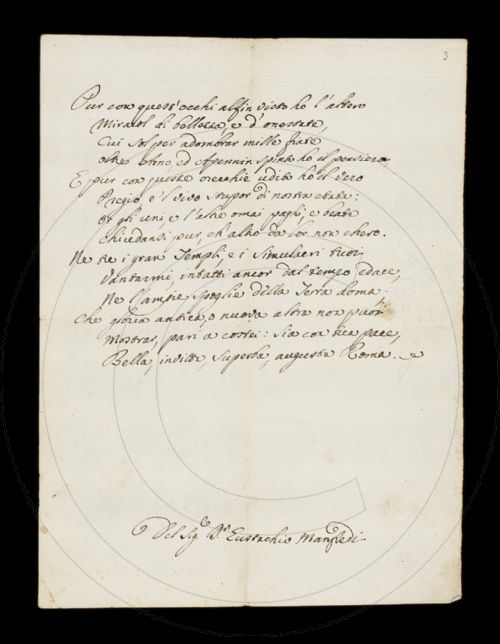 3
Pur con quest'occhi alfin visto ho l'altero
Miracol di bellezza, e d'onestate,
Cui sol per adombrar mille fiate
oltre Arno, ed Apennin spinto ho il pensiero,
E pur con queste orecchie udito ho il vero
Pregio, e 'l vivo stupor di nostra etate:
or gli uni, e l'altre omai paghi, e beate
chiudansi pur, ch'altro da lor non chero.
Ne tu i gran Templi, e i Simulacri tuoi
Vantarmi, intatti ancor dal tempo edace,
Ne l'ampie spoglie della Terra doma;
Che gloria antica, o nuova altra non puoi
Mostrar, pari a costei: sia con tua pace,
Bella, invitta, superba, augusta Roma.
Del Sig.r D.r Eustachio Manfredi